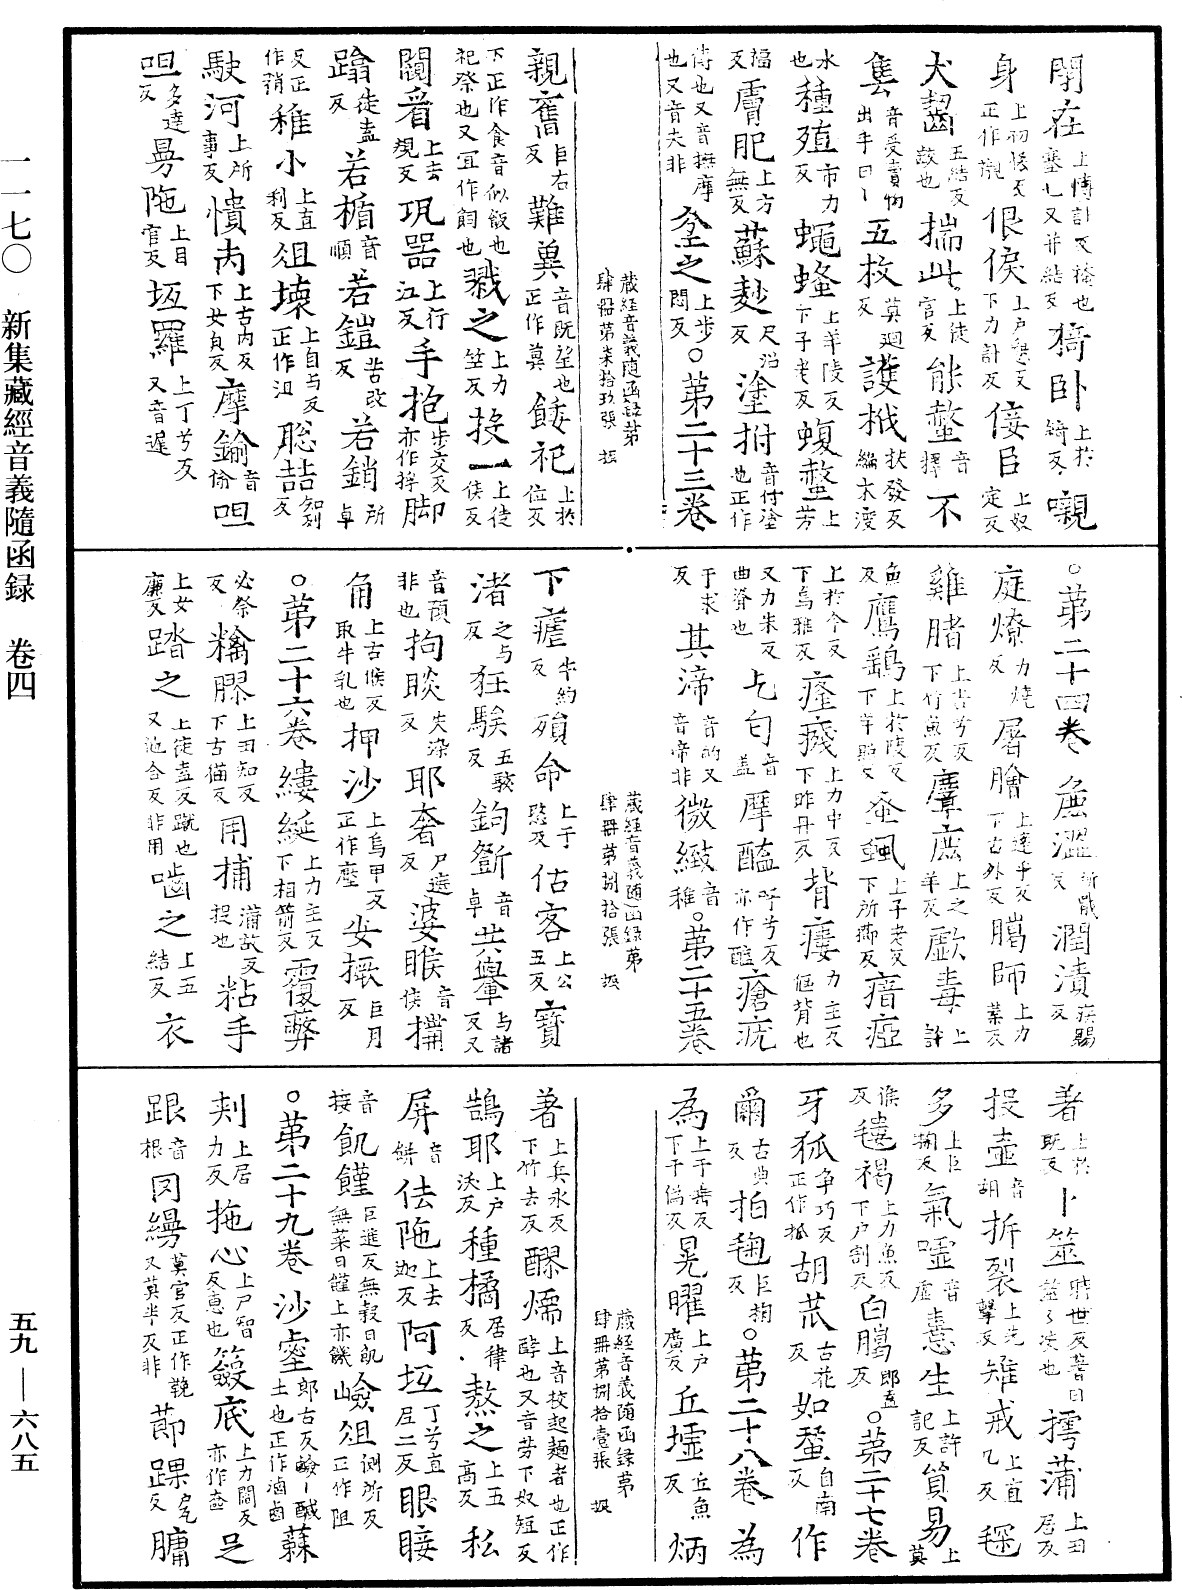 一一七〇　新集藏經音義隨函録　卷四
五九—六八五
閇在上博計反掩也塞也又并結反 㨴卧上於綺反 嚫
身上初恡反正作儭 佷悷上戶懇反下力計反 佞臣上奴定反
犬齧五結反齩也 揣此上徒官反 能螫音釋 不
售音受賣物出手曰丨 五枚莫迴反 護栰扶發反編木渡
水也 種殖市力反 蠅蟁 蝮螫上芳
福反 膚肥上方無反 蘇麨尺沼反 塗拊音付塗也正作
傅也又音撫摩也又音夫非 坌之上步悶反 ○第二十三卷
藏經音義隨函録第
肆冊第柒拾玖張
親舊巨右反 難冀音既望也正作冀 餧祀上於位反
下正作食音似飯也祀祭也又宜作飼也 戮之上力竺反 投一上徒侯反
闚看上去規反 㼦器上行江反 手抱步交反亦作捊 脚
蹹徒盍反 若楯音順 若鎧苦改反 若鎖 卓
反正作矟 稚小上直利反 俎壊上自与反正作沮 聡喆知列反
駛河上所事反 憒丙上古内反下女皃反 摩鍮音偷 呾
呾多達反 曼陁上目官反 坻羅上丁兮反又音遲
○第二十四卷 麁澀所戢反 潤漬疾賜反
庭燎力燒反 屠膾上達乎反下古外反 臈師上力葉反
雞䐗上吉兮反下竹魚反 麞𢉖上之羊反 歐毒上許
魚反 鷹鷂上於陵反下羊照反 蚤䖝上子老反下所櫛反 瘖瘂
上於今反下烏雅反 癃殘上力中反下昨丹反 背瘻力主反傴背也
又力朱反曲脊也 乞匃音盖 摩醯呼兮反亦作醯 瘡疣
于求反 其渧音的又音帝非 微緻音稚 ○第二十五卷
藏經音義隨函録第
肆冊第捌拾張
下瘧牛約反 殞命上于愍反 估客上公五反 寳
渚之与反 狂騃五駭反 鉤斵音卓 共轝与諸反又
音預非也 拘睒失染反 耶奢尸遮反 婆睺音侯 㨶
角上古候反取牛乳也 押沙上烏甲反正作壓 安撅巨月反
○第二十六卷 縷綖上力主反下相箭反 覆蔽
必祭反 黐膠上丑知反下古猫反 用捕蒲故反捉也 粘手
上女廉反 踏之上徒盍反蹴也又池合反非用 嚙之上五結反 衣
著上於既反 卜筮時世反蓍曰筮 摴蒲上丑居反
投壺音胡 拆裂上尺擊反 雉戒上直几反 毾
多上巨掬反 氣嘘音虛 憙生上許記反 貿易上莫
候反 氀褐上力魚反下戶割反 白臈郎盍反 ○第二十七卷
牙狐 胡苽古花反 如蠶自南反 作
𠕋古典反 拍毱巨掬反 ○第二十八卷 為
為上于委反下于偽反 晃曜上戶廣反 丘墟丘魚反 炳
藏經音義隨函録第
肆冊第捌拾壹張
著上兵永反下竹去反 醪㸐
鵠耶上戶沃反 種橘居律反 熬之上五高反 私
屏音餅 佉陁上去迦反 阿坻 眼睫
音接 飢饉巨進反無穀曰飢無菜曰饉上亦饑 嶮俎側所反正作阻
○第二十九卷 沙塷郎古反 蘇
刾上居力反 拖心 籨底 足
跟音根 罔縵莫官反正作鞔又莫半反非 節踝 𦟛